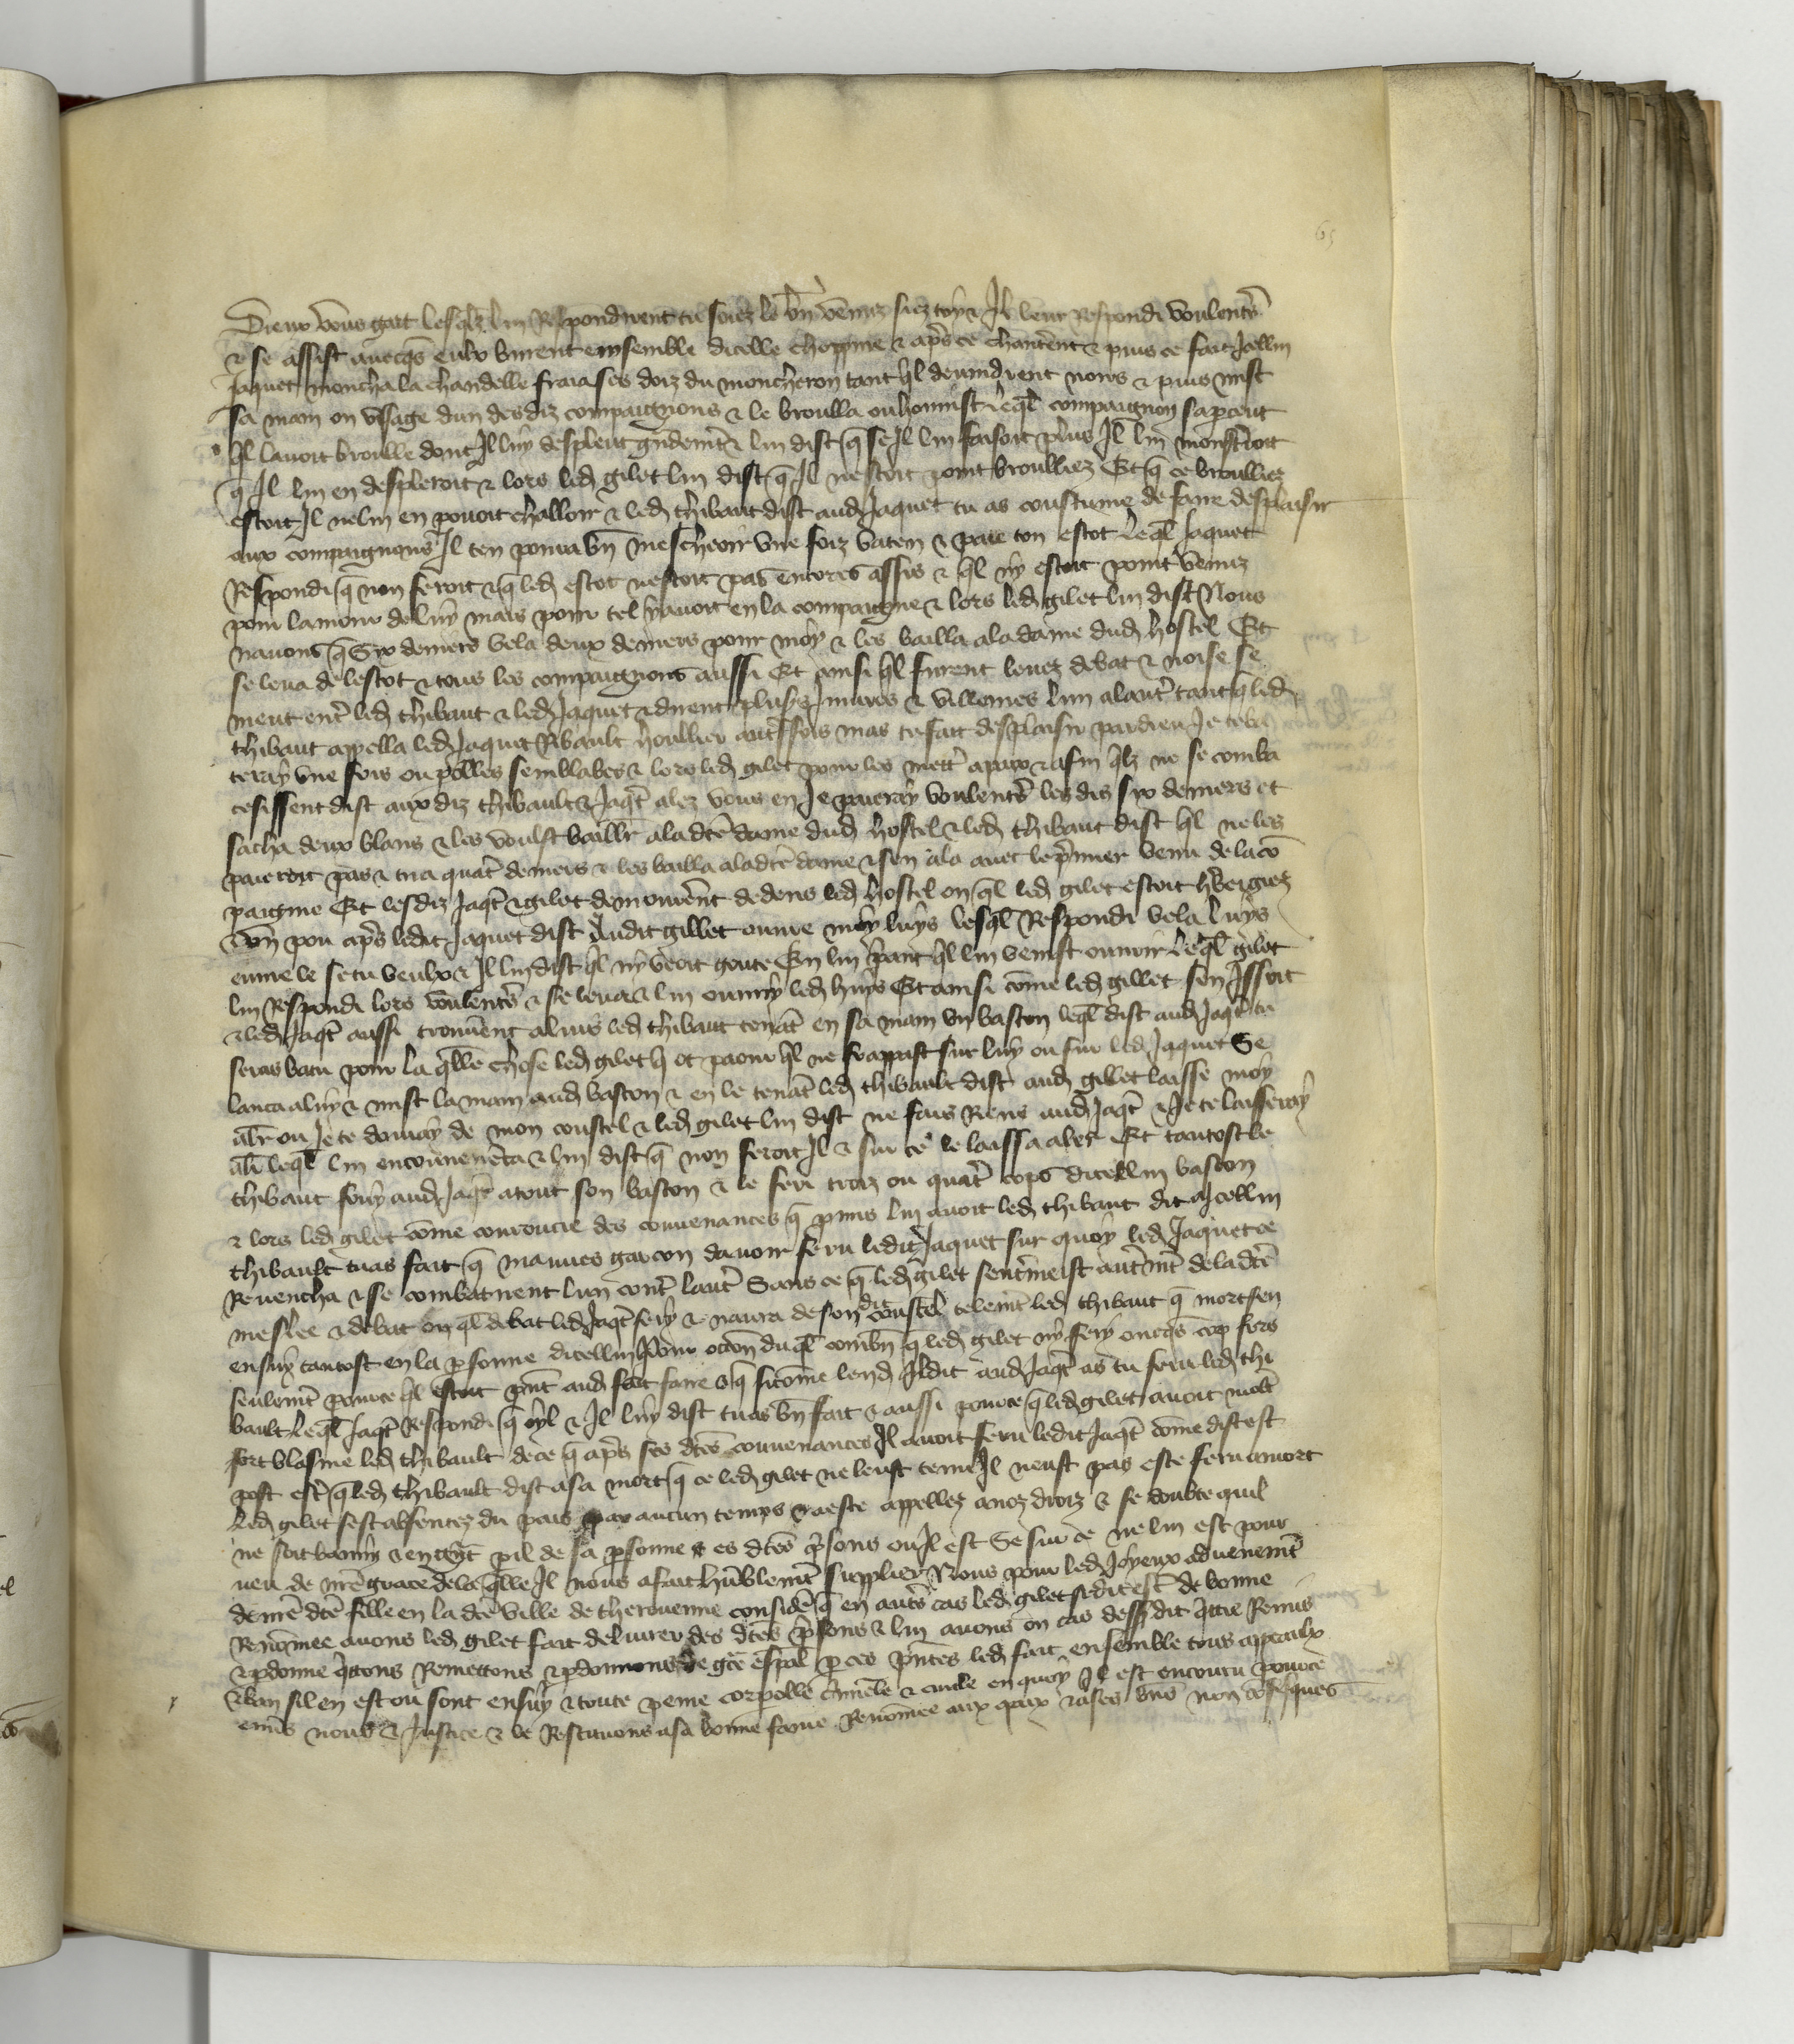 65
Dieux vous gart lesqlz lui Respondirent tu soiez le bn venuz siez toy & Il leur respondi voulentrs
& se assist avecqs eulx burent ensemble dicelle choppine & aprs ce chanterent & puis ce fait Icellui
Jaquet moucha la chandelle fraia ses doiz du moucheron tant ql devindrent noirs & puis mist
sa main ou visage dun desdiz compaignons & le broulla ou honnist leql compaignon sapceut
ql lavoit broulle dont Il luy despleut grndemt & lui dist q se Il lui faisoit plus Il lui monstreroit
q Il lui en despleroit & lors led gilet lui dist q Il nestoit point broulliez Et q ce broulliez
estoit Il ne lui en povoit challoir & led thibaut dist aud Jaquet tu as coustume de faire desplaisir
aux compaignons Il ten pourra bn mescheoir une foiz vaten & paie ton escot leql Jaquet
Respondi q non feroit & q led escot nestoit pas encores assis & ql ny estoit point venuz
pour lamour de luy mais pour tel y avoit en la compaignie & lors led gilet lui dist Nous
navons q Six deniers vela deux deniers pour moy & les bailla a la dame dud hostel Et
se leva de lescot & tous les compaignons aussi Et ainsi ql furent levez debat & noise se
meut entr led thibaut & led Jaquet & dirent plusrs Injures & villenies lun a lautr tant q led
thibaut appella led Jaquet Ribault houllier autrffois mas tu fait desplaisir par dieu Je te ba
teray une fois ou polles semblabes & lors led gilet pour les mettr a paix & afin qlz ne se comba
tesissent dist aux diz thibault & Jaqt alez vous en Je paieray voulentrs les dis six deniers et
sacha deux blans & les voulst baillr a la dte dame dud hostel & led thibaut dist ql ne les
paieroit pas & tira quatr deniers & les bailla a la dte dame & sen ala avec le prmier venu de la co
paignie Et lesdiz Jaqt & gilet demourent dedens led hostel ou ql led gilet estoit hbergiez
& un pou aprs ledit Jaquet dist Audit gillet ouvre moy luys lesql Respondi vela luys
euvre le se tu veulx & Il lui dist ql ny veoit goute En lui priant ql lui venist ouvrir leql gilet
lui Respondi lors voulentrs & se leva & lui ouvry led huys Et ainsi come led gillet sen Issoit
& led Jaqt aussi trouvent a luis led thibaut tenat en sa main un baston leql dist aud Jaqt tu
seras batu pour la qlle chose led gilet q ot paour ql ne frappast sur luy ou sur led Jaquet Se
lanca a luy & mist la main aud baston & en le tenat led thibault dist aud gillet laisse moy
alr ou Je te donray de mon coustel & led gilet lui dist ne fais Riens aud Jaqt & Je te laisseray
alr leql lui encouvenenta & lui dist q non feroit Il & sur ce le laissa aler Et tantost le
thibaut fery aud Jaqt a tout son baston & le feri troiz ou quatr cops dicellui baston
& lors led gilet come courroucie des convenances q prmis lui avoit led thibaut dit a Icellui
thibault tu as fait q mauves garcon davoir feru ledit Jaquet sur quoy led Jaquet se
Revencha & se combatirent lun contr lautr Sans ce q led gilet sentrmeist autrmt de la dte
meslee & debat ou ql debat led Jaqt fery & navra de son dit coustel telemt led thibaut q mort sen
ensuy tantost en la psonne dicellui Pour occon duql combn q led gilet ny fery oncqs cop fors
seulemt pource ql estoit prnt aud fait faire & q sicome len d Il dit aud Jaqt as tu feru led thi
bault leql Jaqt Respondi q oyl & Il luy dist tu as bn fait & aussi pource q led gilet avoit molt
fort blasme led thibault de ce q aprs ses dtes convenances Il avoit feru ledit Jaqt come dist est
post estr q led thibault dist a sa mort q ce led gilet ne leust tenu Il neust pas este feru a mort
Led gilet sest absentez du pais par aucun temps & a este appellez a noz droiz & se doubte quil
ne soit banny & en grnt pil de sa psonne es dtes prsons ou Il est Se sur ce ne lui est pour
veu de nre grace de la qlle Il nous a fait hublemt supplier Nous pour led Joyeux advenemt
de nre dte fille en la dte ville de therouenne considr q en autrs cas led gilet sedit est de bonne
Renomee avons led gilet fait delivrer des dtes prsons & lui avons ou cas dessusdit qttie Remis
& pdonne qttons Remettons & pdonnons de grce espal p ces prntes led fait ensemble tous appeaulx
& ban sil en est ou sont ensuy & toute peine corpolle crimele & civile en quoy Il est encouru pource
envs nous & Justice & le Restituons a sa bonne fame Renomee aux paix & a ses bns non cofisques